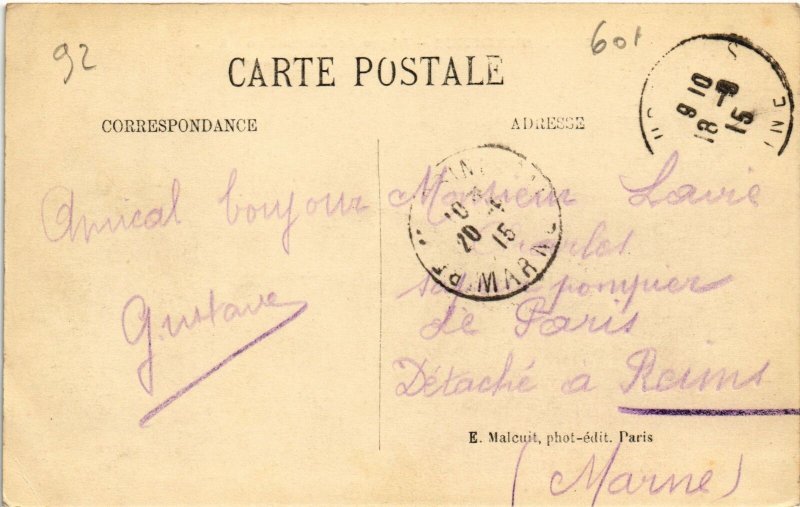 92
601
CARTE POSTALE
CORRESPONDANCE
ADRESSE
Amical bonjour
Gustave
Monsieur Lavie
Charles
sapeur pompier
de Paris
Détaché a Reims
(Marne)
E. Malcuit, phot-édit. Paris
9 10
18 15
20 15
MARNE